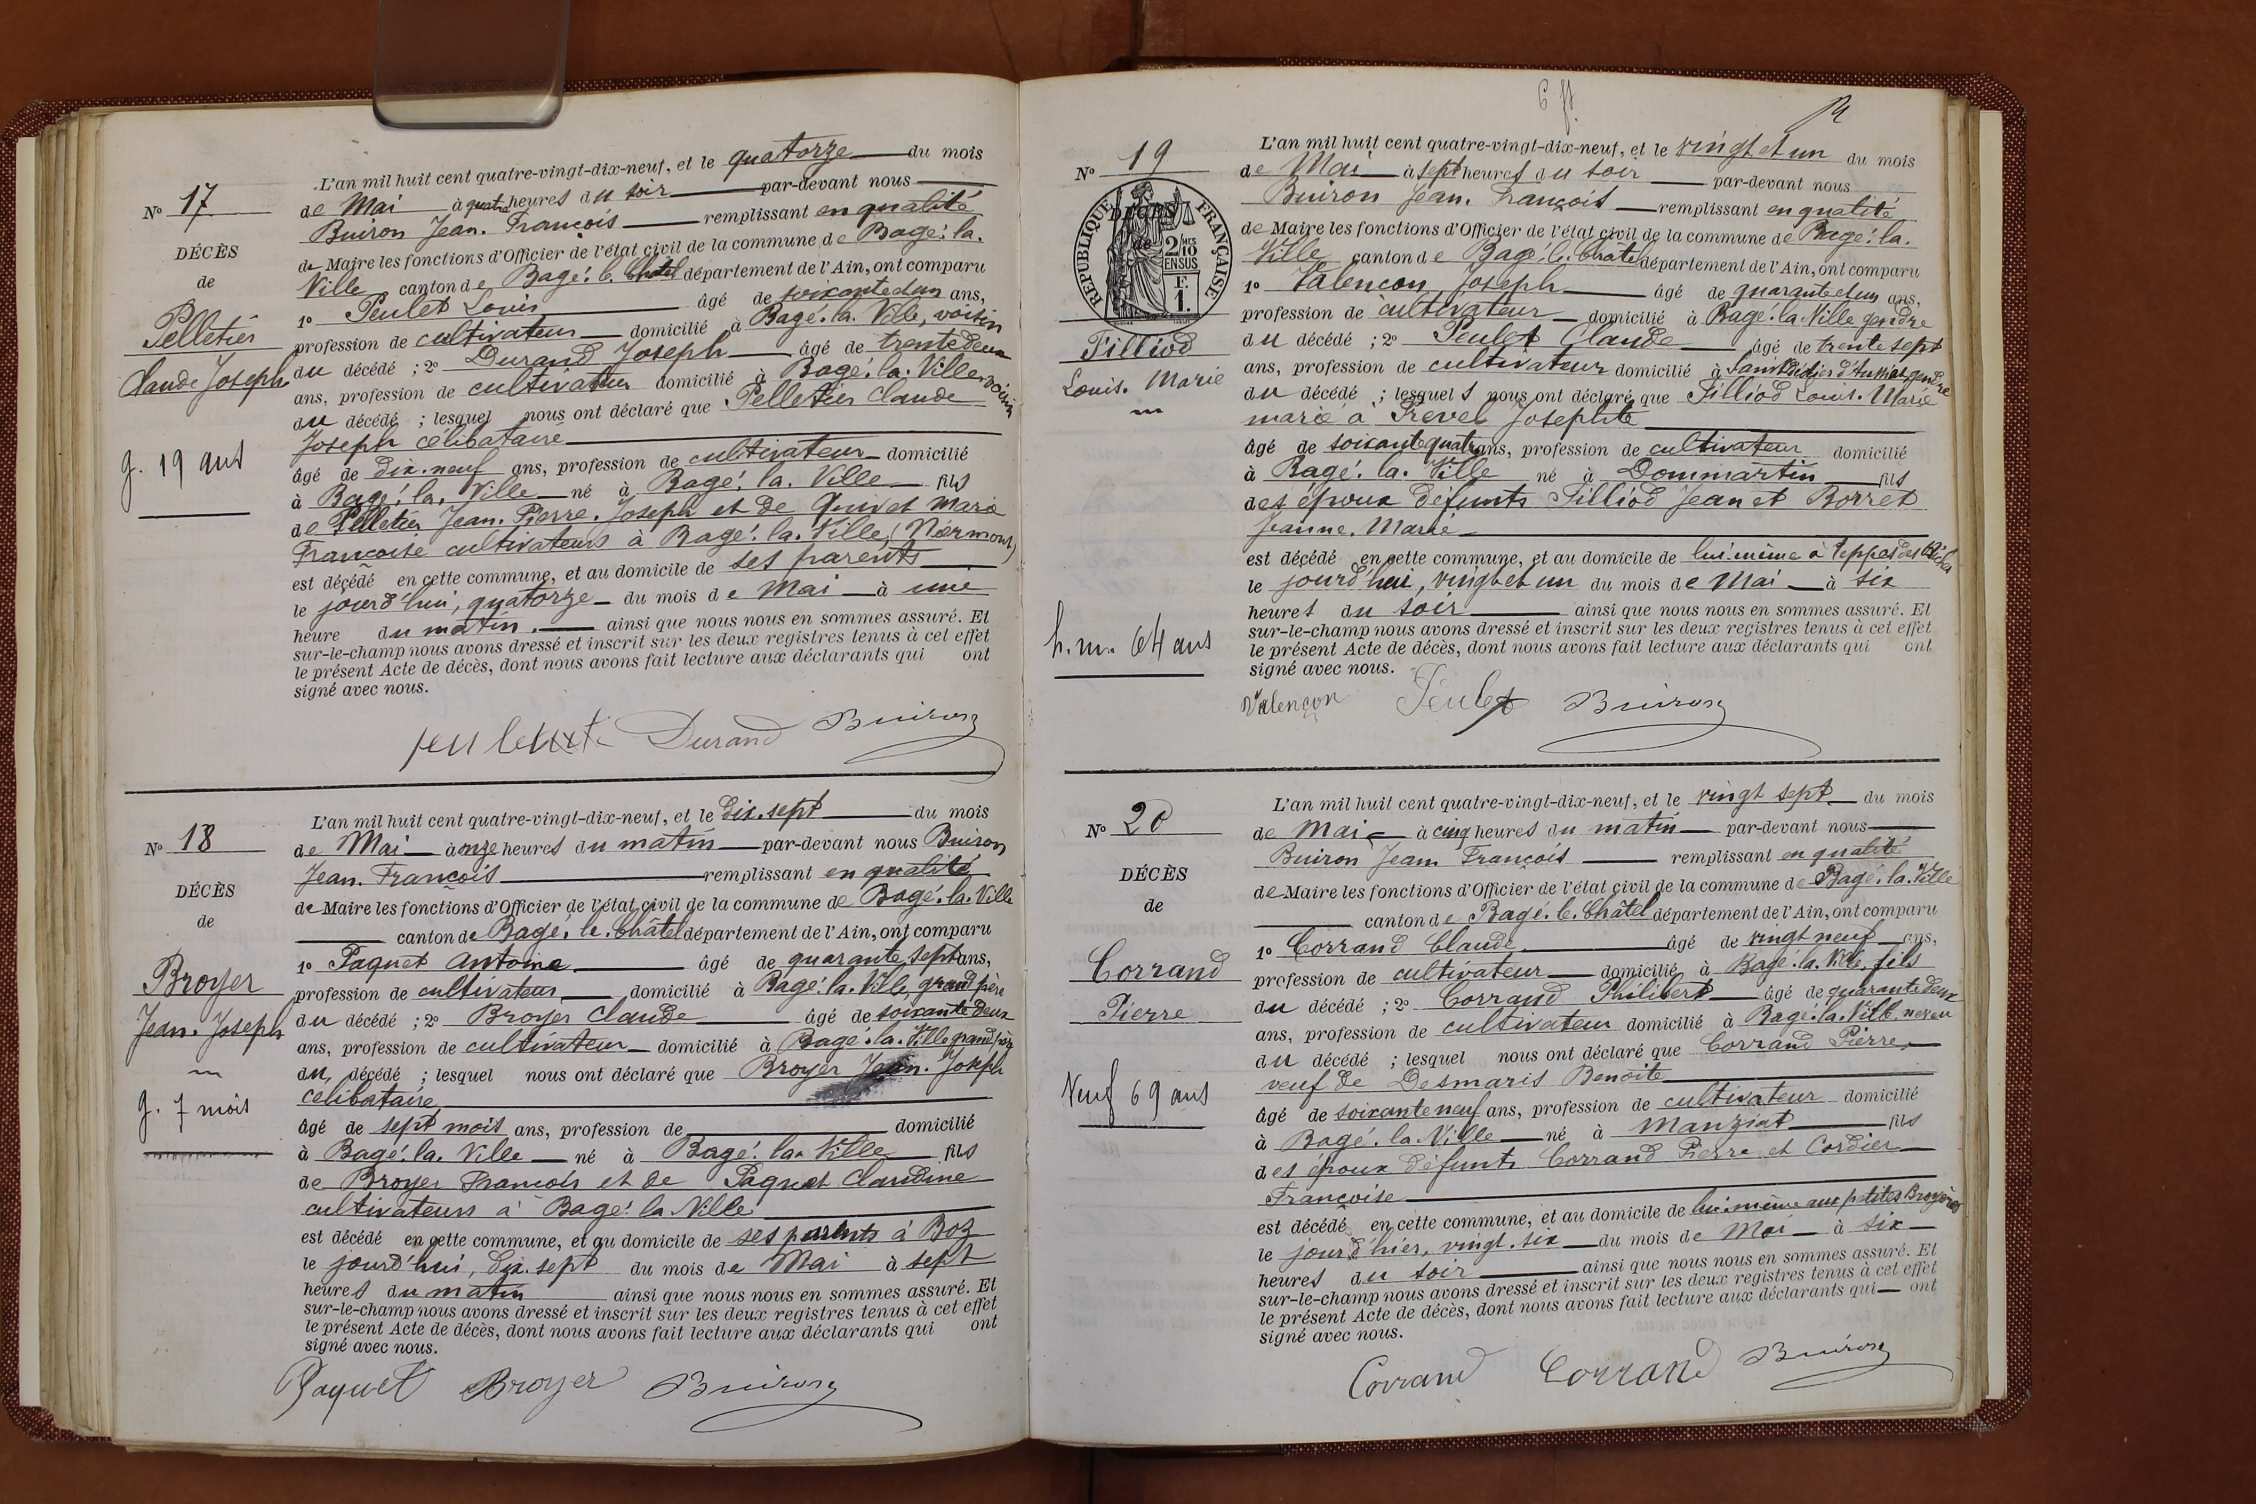 N° 17
DÉCÈS
de
Pelletier
Claude Joseph
g. 19 ans
L'an mil huit cent quatre-vingt-dix-neuf, et le quatorze du mois
de Mai à quatre heures du soir par-devant nous
Buiron Jean. François remplissant en qualité
de Maire les fonctions d'Officier de l'état civil de la commune de Bagé. la.
Ville canton de Bagé. le. Châtel département de l'Ain, ont comparu
1° Peulet Louis âgé de soixante et un ans,
profession de cultivateur domicilié à Bagé. la. Ville, voisin
du décédé ; 2° Durand Joseph âgé de trente deux
ans, profession de cultivateur domicilié à Bagé. la. Ville voisin
du décédé ; lesquel nous ont déclaré que Pelletier Claude
Joseph célibataire
âgé de dix. neuf ans, profession de cultivateur domicilié
à Bagé. la. Ville né à Bagé. la. Ville fils
de Pelletier Jean. Pierre. Joseph et de Quivet Marie
Françoise cultivateurs à Bagé. la. Ville (Nermont)
est décédé en cette commune, et au domicile de ses parents
le jourd'hui, quatorze du mois de Mai à une
heure du matin. ainsi que nous nous en sommes assuré. Et
sur-le-champ nous avons dressé et inscrit sur les deux registres tenus à cet effet
le présent Acte de décès, dont nous avons fait lecture aux déclarants qui ont
signé avec nous.
Durand Buiron
N° 18
DÉCÈS
de
Broyer
Jean. Joseph
g. 7 mois
L'an mil huit cent quatre-vingt-dix-neuf, et le dix. sept du mois
de Mai à onze heures du matin par-devant nous Buiron
Jean. François remplissant en qualité
de Maire les fonctions d'Officier de l'état civil de la commune de Bagé. la. Ville
canton de Bagé. le. Châtel département de l'Ain, ont comparu
1° Paquet Antoine âgé de quarante sept ans,
profession de cultivateur domicilié à Bagé. la. Ville, grand père
du décédé ; 2° Broyer Claude âgé de soixante deux
ans, profession de cultivateur domicilié à Bagé. la. Ville grand père
du décédé ; lesquel nous ont déclaré que Broyer Jean. Joseph
célibataire
âgé de sept mois ans, profession de domicilié
à Bagé. la. Ville né à Bagé. la. Ville fils
de Broyer François et de Paquet Claudine
cultivateurs à Bagé. la Ville
est décédé en cette commune, et au domicile de ses parents à Boz
le jourd'hui, dix. sept du mois de Mai à sept
heures du matin ainsi que nous nous en sommes assuré. Et
sur-le-champ nous avons dressé et inscrit sur les deux registres tenus à cet effet
le présent Acte de décès, dont nous avons fait lecture aux déclarants qui ont
signé avec nous.
Paquet Broyer Buiron
N° 19
DÉCÈS
de
RÉPUBLIQUE FRANÇAISE
2/10 EN SUS
F.
1.
Filliod
Louis. Marie
h. m. 64 ans
L'an mil huit cent quatre-vingt-dix-neuf, et le vingt et un du mois
de Mai à sept heures du soir par-devant nous
Buiron Jean. François remplissant en qualité
de Maire les fonctions d'Officier de l'état civil de la commune de Bagé. la.
Ville canton de Bagé. le. Châtel département de l'Ain, ont comparu
1° Valençon Joseph âgé de quarante et un ans,
profession de cultivateur domicilié à Bagé. la Ville gendre
du décédé ; 2° Peulet Claude âgé de trente sept
ans, profession de cultivateur domicilié à Saint Didier d'Aussiat gendre
du décédé ; lesquels nous ont déclaré que Filliod Louis. Marie
marié à Prevel Josephte
âgé de soixante quatre ans, profession de cultivateur domicilié
à Bagé. la. Ville né à Dommartin fils
des époux défunts Filliod Jean et Borret
Jeanne. Marie
est décédé en cette commune, et au domicile de lui. même à Teppes des
le jourd'hui, vingt et un du mois de Mai à six
heures du soir ainsi que nous nous en sommes assuré. Et
sur-le-champ nous avons dressé et inscrit sur les deux registres tenus à cet effet
le présent Acte de décès, dont nous avons fait lecture aux déclarants qui ont
signé avec nous.
Valençon Peulet Buiron
N° 20
DÉCÈS
de
Corrand
Pierre
Veuf 69 ans
L'an mil huit cent quatre-vingt-dix-neuf, et le vingt sept du mois
de Mai à cinq heures du matin par-devant nous
Buiron Jean François remplissant en qualité
de Maire les fonctions d'Officier de l'état civil de la commune de Bagé. la. Ville
canton de Bagé. le. Châtel département de l'Ain, ont comparu
1° Corrand Claude âgé de vingt neuf ans,
profession de cultivateur domicilié à Bagé. la. Ville, fils
du décédé ; 2° Corrand Philibert âgé de quarante deux
ans, profession de cultivateur domicilié à Bagé. la. Ville neveu
du décédé ; lesquel nous ont déclaré que Corrand Pierre,
veuf de Desmaris Benoite
âgé de soixante neuf ans, profession de cultivateur domicilié
à Bagé. la Ville né à Manziat fils
des époux défunts Corrand Pierre et Cordier
Françoise
est décédé en cette commune, et au domicile de lui. même aux petites Broyères
le jour d'hier, vingt. six du mois de Mai à six
heures du soir ainsi que nous nous en sommes assuré. Et
sur-le-champ nous avons dressé et inscrit sur les deux registres tenus à cet effet
le présent Acte de décès, dont nous avons fait lecture aux déclarants qui ont
signé avec nous.
Corrand Corrand Buiron